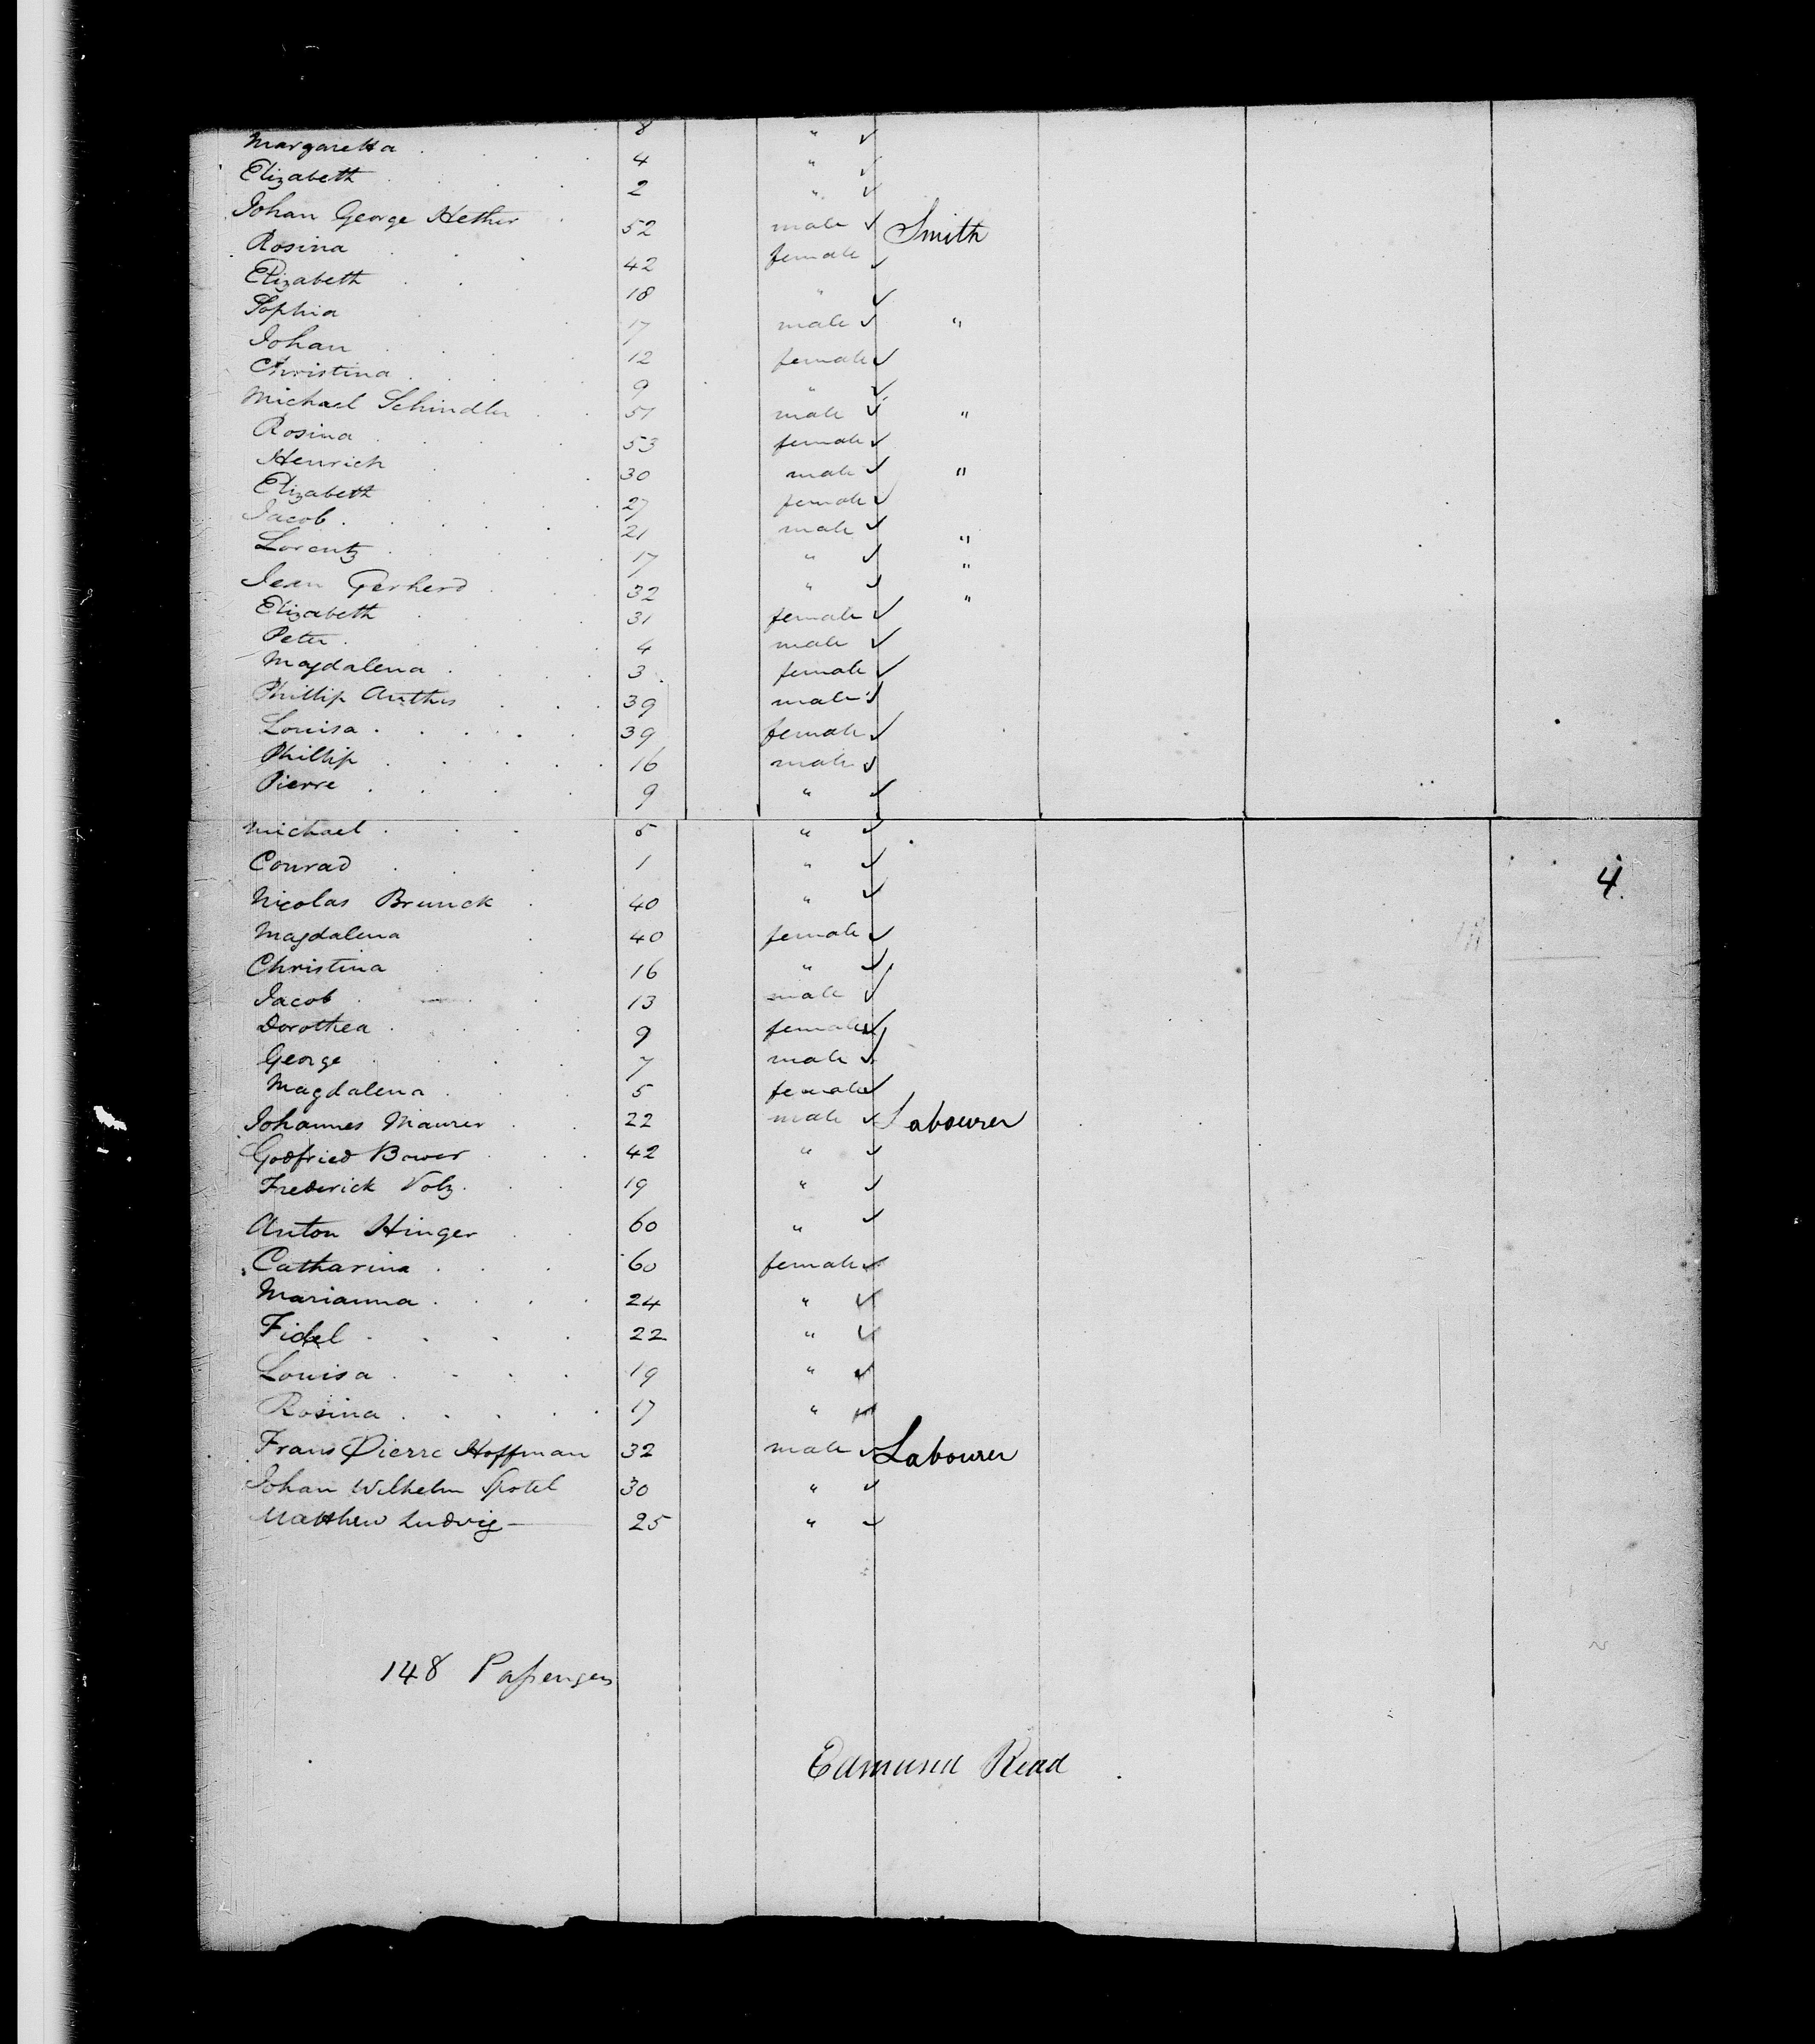 8 "
Margaretta 4 "
Elizabeth 2 "
Johan George Hether 52 male Smith
Rosina 42 female
Elizabeth 18 "
Sophia 17 male "
Johan 12 female
Christina 9 "
Michael Schindler 51 male "
Rosina 53 female
Henrich 30 male "
Elizabeth 27 female
Jacob 21 male "
Lorentz 17 " "
Jean Gerherd 32 " "
Elizabeth 31 female
Peter 4 male
Magdalena 3 female
Phillip Anthes 39 male
Louisa 39 female
Phillip 16 male
Pierre 9 "
Michael 5 "
Conrad 1 "
4.
Nicolas Brunck 40 "
Magdalena 40 female
Christina 16 "
Jacob 13 male
Dorothea 9 female
George 7 male
Magdalena 5 female
Johannes Maurer 22 male Labourer
Godfried Bower 42 "
Frederick Volz 19 "
Anton Hinger 60 "
Catharina 60 female
Marianna 24 "
Fidel 22 "
Louisa 19 "
Rosina 17 "
Frans Pierre Hoffman 32 male Labourer
Johan Wilhelm Spotel 30 "
Matthew Ludvig 25 "
148 Passengers
Edmund Read